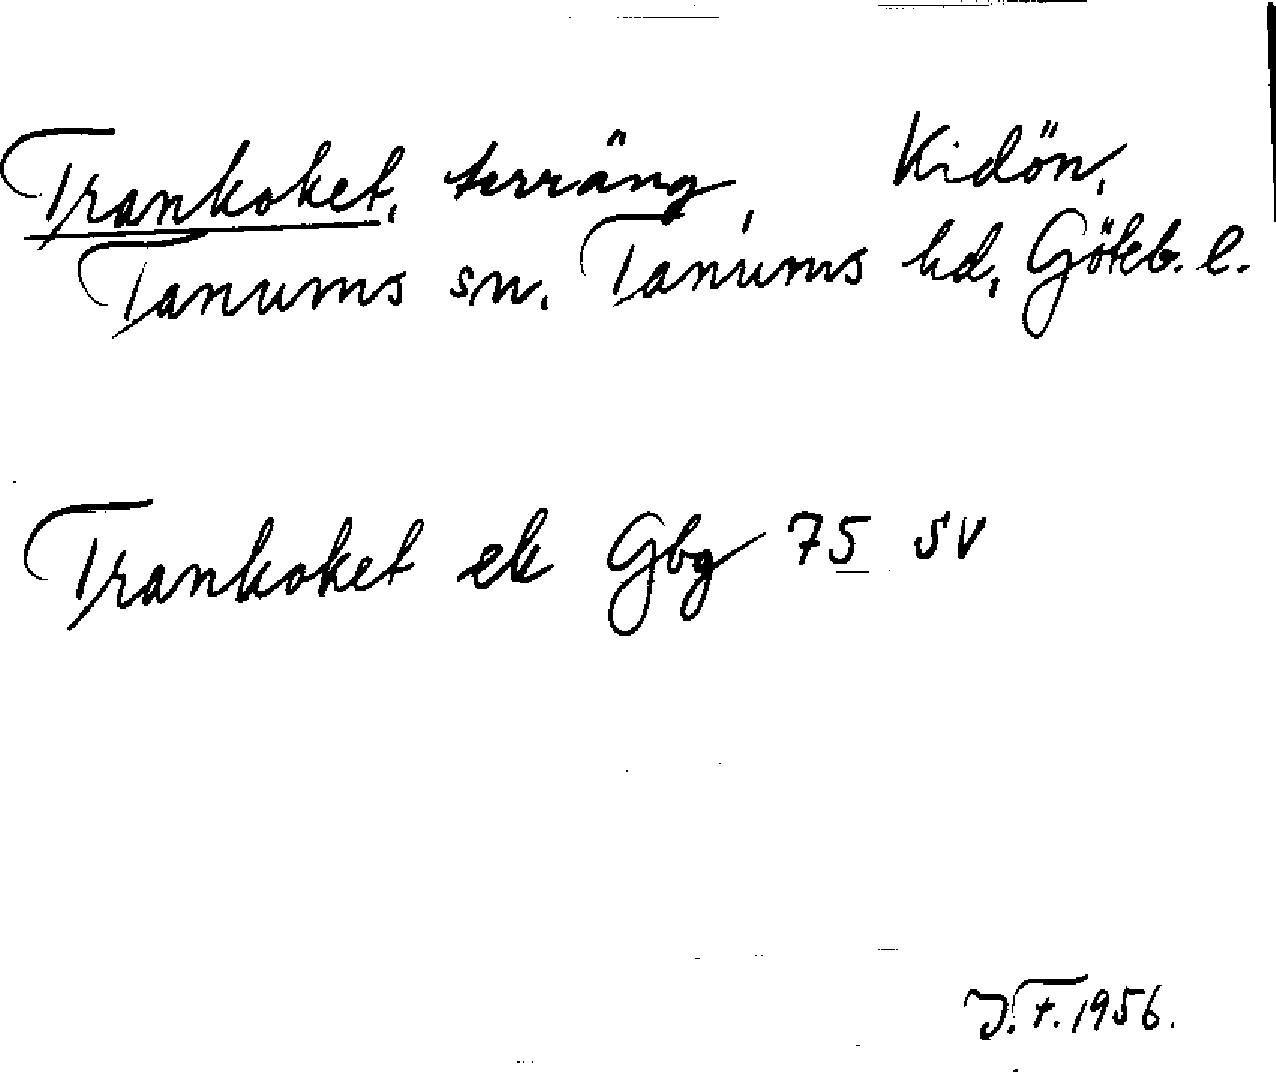 Trankoket, terräng, Kidön,
Tanums sn, Tanums hd, Göteb. l.
Trankoket ek Gbg 75 SV
J.F. 1956.